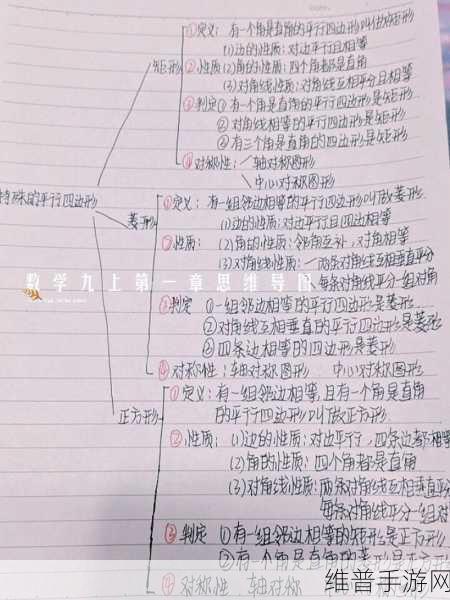 ①定义：有一个角是直角的平行四边形叫做矩形
(1)边的性质：对边平行且相等
矩形
②性质(2)角的性质：四个角都是直角
(3)对角线性质：对角线互相平分且相等
③判定①有一个角是直角的平行四边形是矩形
②对角线相等的平行四边形是矩形
③有三个角是直角的四边形是矩形
④对称性：轴对称图形
中心对称图形
特殊的平行四边形
①定义：有一组邻边相等的平行四边形叫做菱形
菱形
(1)边的性质：对边平行且四边相等
②性质：(2)角的性质：邻角互补，对角相等
(3)对角线性质：两条对角线互相垂直平分
每条对角线平分一组对角
数学九上第一章思维导图
③判定 ①一组邻边相等的平行四边形是菱形
②对角线互相垂直的平行四边形是菱形
③四条边相等的四边形是菱形
④对称性：轴对称图形 中心对称图形
①定义：有一组邻边相等，且有一个角是直角
的平行四边形叫做正方形
正方形
②性质：(1)边的性质：对边平行，四条边都相等
(2)角的性质：四个角都是直角
(3)对角线性质：两条对角线互相垂直平分
每条对角线平分一组对
③判定 ①有一组邻边相等的矩形是正方形
②有一个角是直角的菱形是正方形
④对称性：轴对称
维普手游网